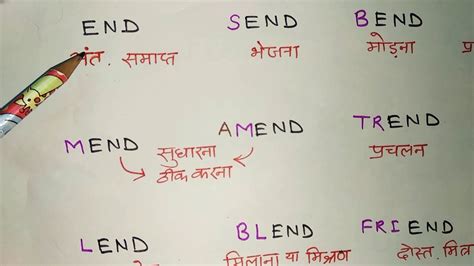 END SEND BEND
अंत. समाप्त भेजना मोड़ना
MEND AMEND TREND
सुधारना प्रचलन
ठीक करना
LEND BLEND FRIEND
मिलाना या मिश्रण दोस्त. मित्र